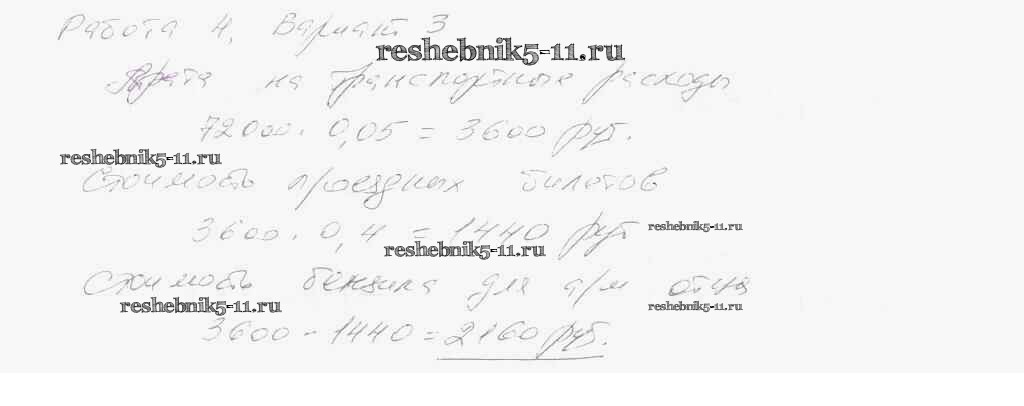 Работа 4, Вариант 3
reshebnik5-11.ru
Трата на транспортные расходы
72000 · 0,05 = 3600 руб.
reshebnik5-11.ru
Стоимость проездных билетов
3600 · 0,4 = 1440 руб
reshebnik5-11.ru
reshebnik5-11.ru
Стоимость бензина для а/м отца
reshebnik5-11.ru
reshebnik5-11.ru
3600 - 1440 = 2160 руб.